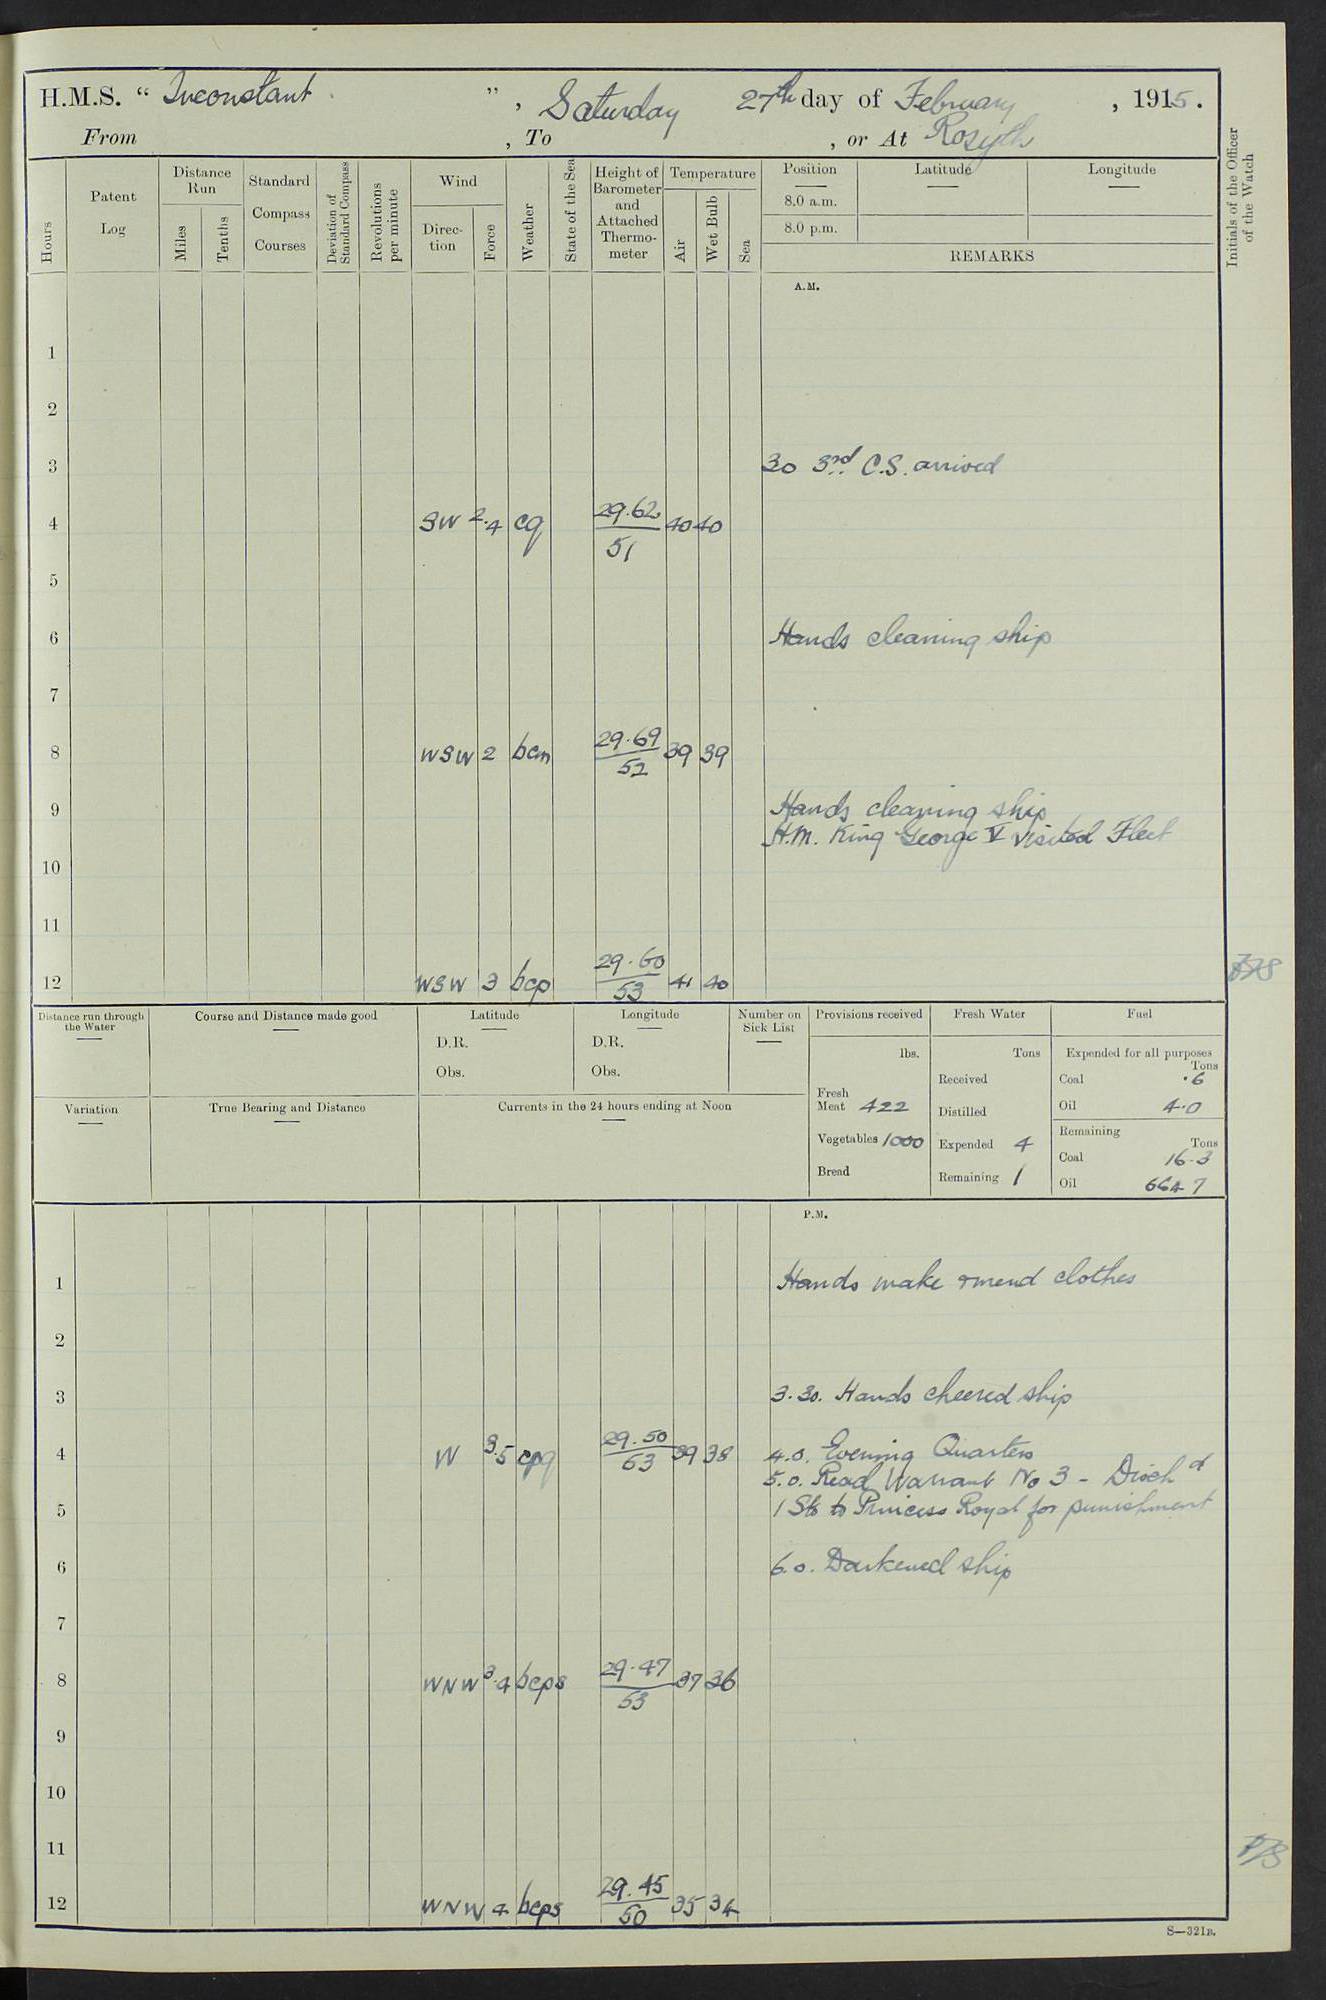 H.M.S. “ Inconstant ” , Saturday 27th day of February , 1915.
From , To , or At Rosyth
Hours
Patent Log
Distance Run
Miles
Tenths
Standard Compass Courses
Deviation of Standard Compass
Revolutions per minute
Wind
Direction
Force
Weather
State of the Sea
Height of Barometer and Attached Thermometer
Temperature
Air
Wet Bulb
Sea
Position
8.0 a.m.
8.0 p.m.
Latitude
Longitude
REMARKS
Initials of the Officer of the Watch
A.M.
1
2
3 30 3rd C.S. arrived
4 SW 2.4 cq 29.62 40 40
51
5
6 Hands cleaning ship
7
8 WSW 2 bcm 29.69 39 39
52
9 Hands cleaning ship
H.M. King George V visited Fleet
10
11
12 WSW 3 bcp 29.60 41 40
53
Distance run through the Water
Course and Distance made good
Latitude
D.R.
Obs.
Longitude
D.R.
Obs.
Number on Sick List
Provisions received
lbs.
Fresh Meat 422
Vegetables 1000
Bread
Fresh Water
Tons
Received
Distilled
Expended 4
Remaining 1
Fuel
Expended for all purposes
Tons
Coal .6
Oil 4.0
Remaining
Tons
Coal 16.3
Oil 664 7
Variation
True Bearing and Distance
Currents in the 24 hours ending at Noon
P.M.
1 Hands make & mend clothes
2
3 3.30. Hands cheered ship
4 W 3.5 cpq 29.50 39 38 4.0. Evening Quarters
53
5.0. Read Warrant No 3 - Disch d
5 1 Sto to Princess Royal for punishment
6 6.0. Darkened ship
7
8 WNW 3.4 bcps 29.47 37 36
53
9
10
11
12 WNW 4 bcps 29.45 35 34
50
S—321B.